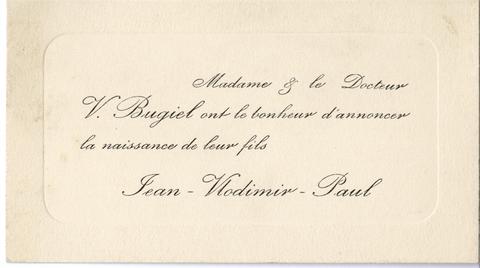 Madame & le Docteur
V. Bugiel ont le bonheur d'annoncer
la naissance de leur fils
Jean - Vlodimir - Paul